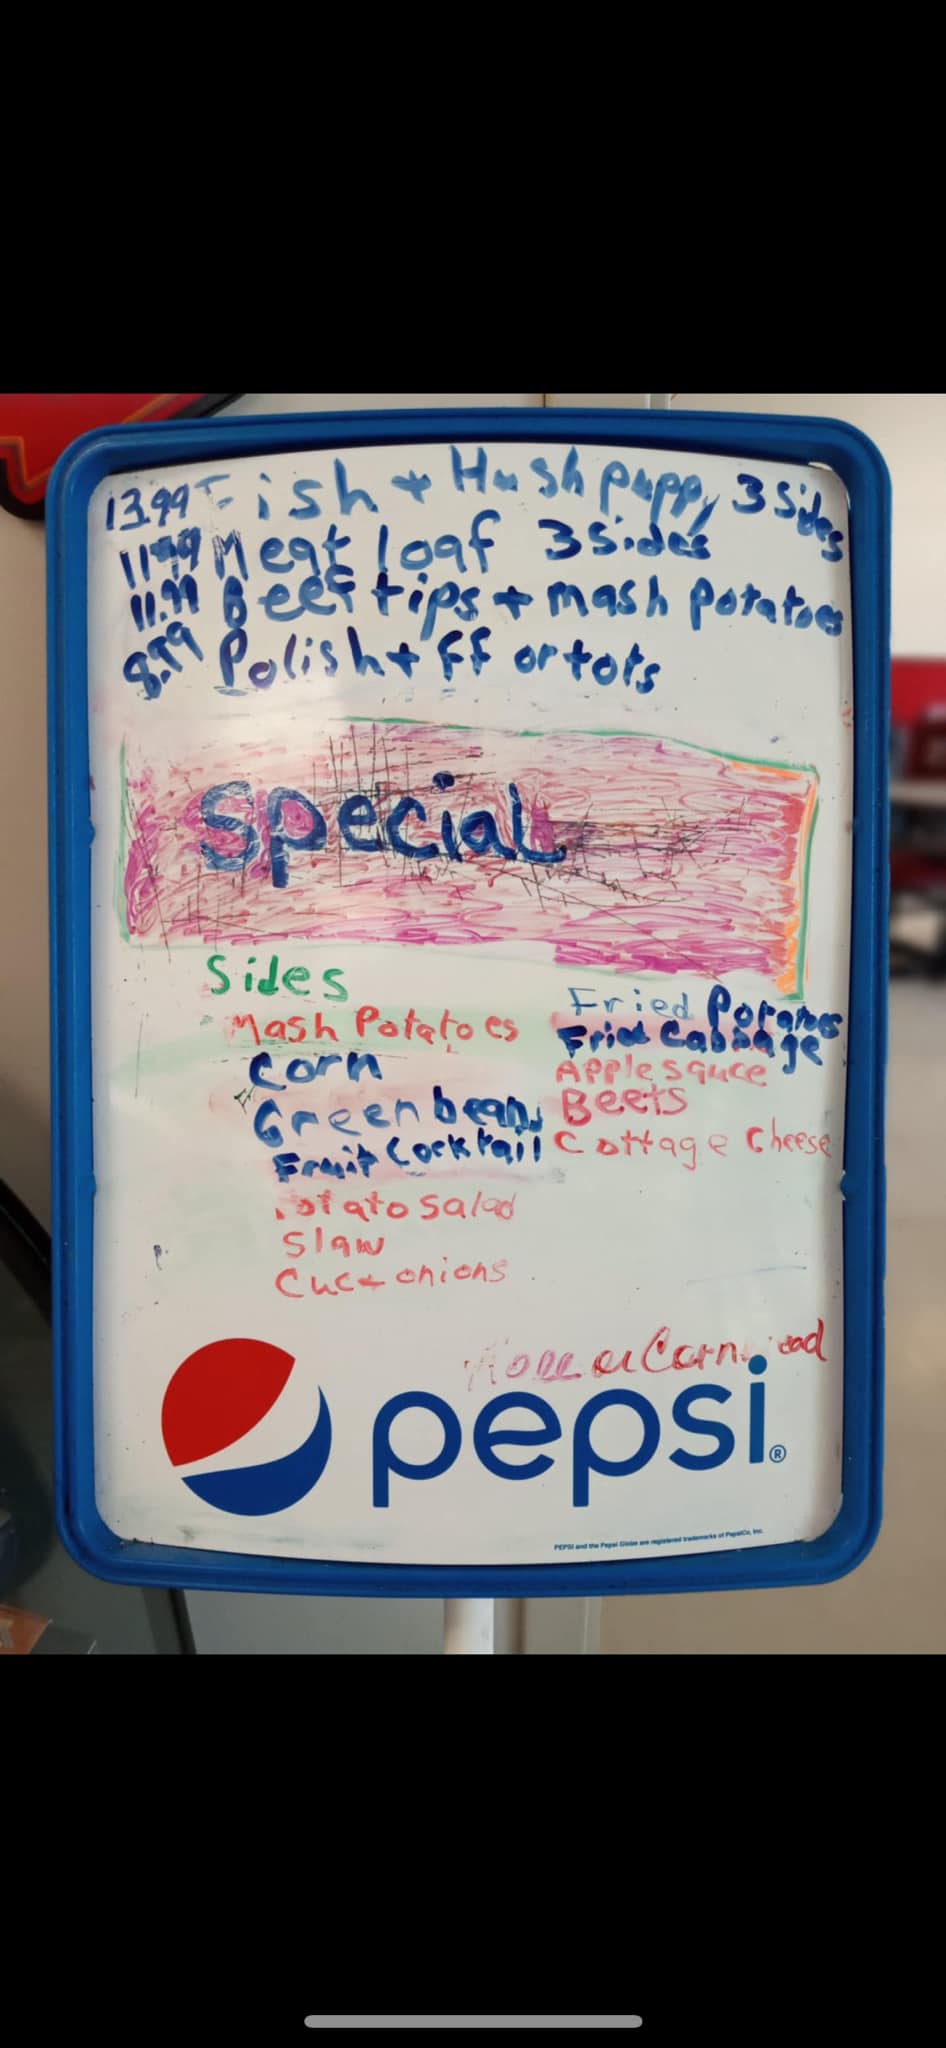 13.99 Fish + Hush puppy 3 Sides
11.99 Meat loaf 3 Sides
11.99 Beef tips + mash potatoes
8.99 Polish + ff or tots
Special
Sides
Mash Potatoes
Corn
Green beans
Fruit Cocktail
Potato Salad
Slaw
Cuc + onions
Fried Potatoes
Fried Cabbage
Applesauce
Beets
Cottage Cheese
pepsi®
PEPSI and the Pepsi Globe are registered trademarks of PepsiCo, Inc.